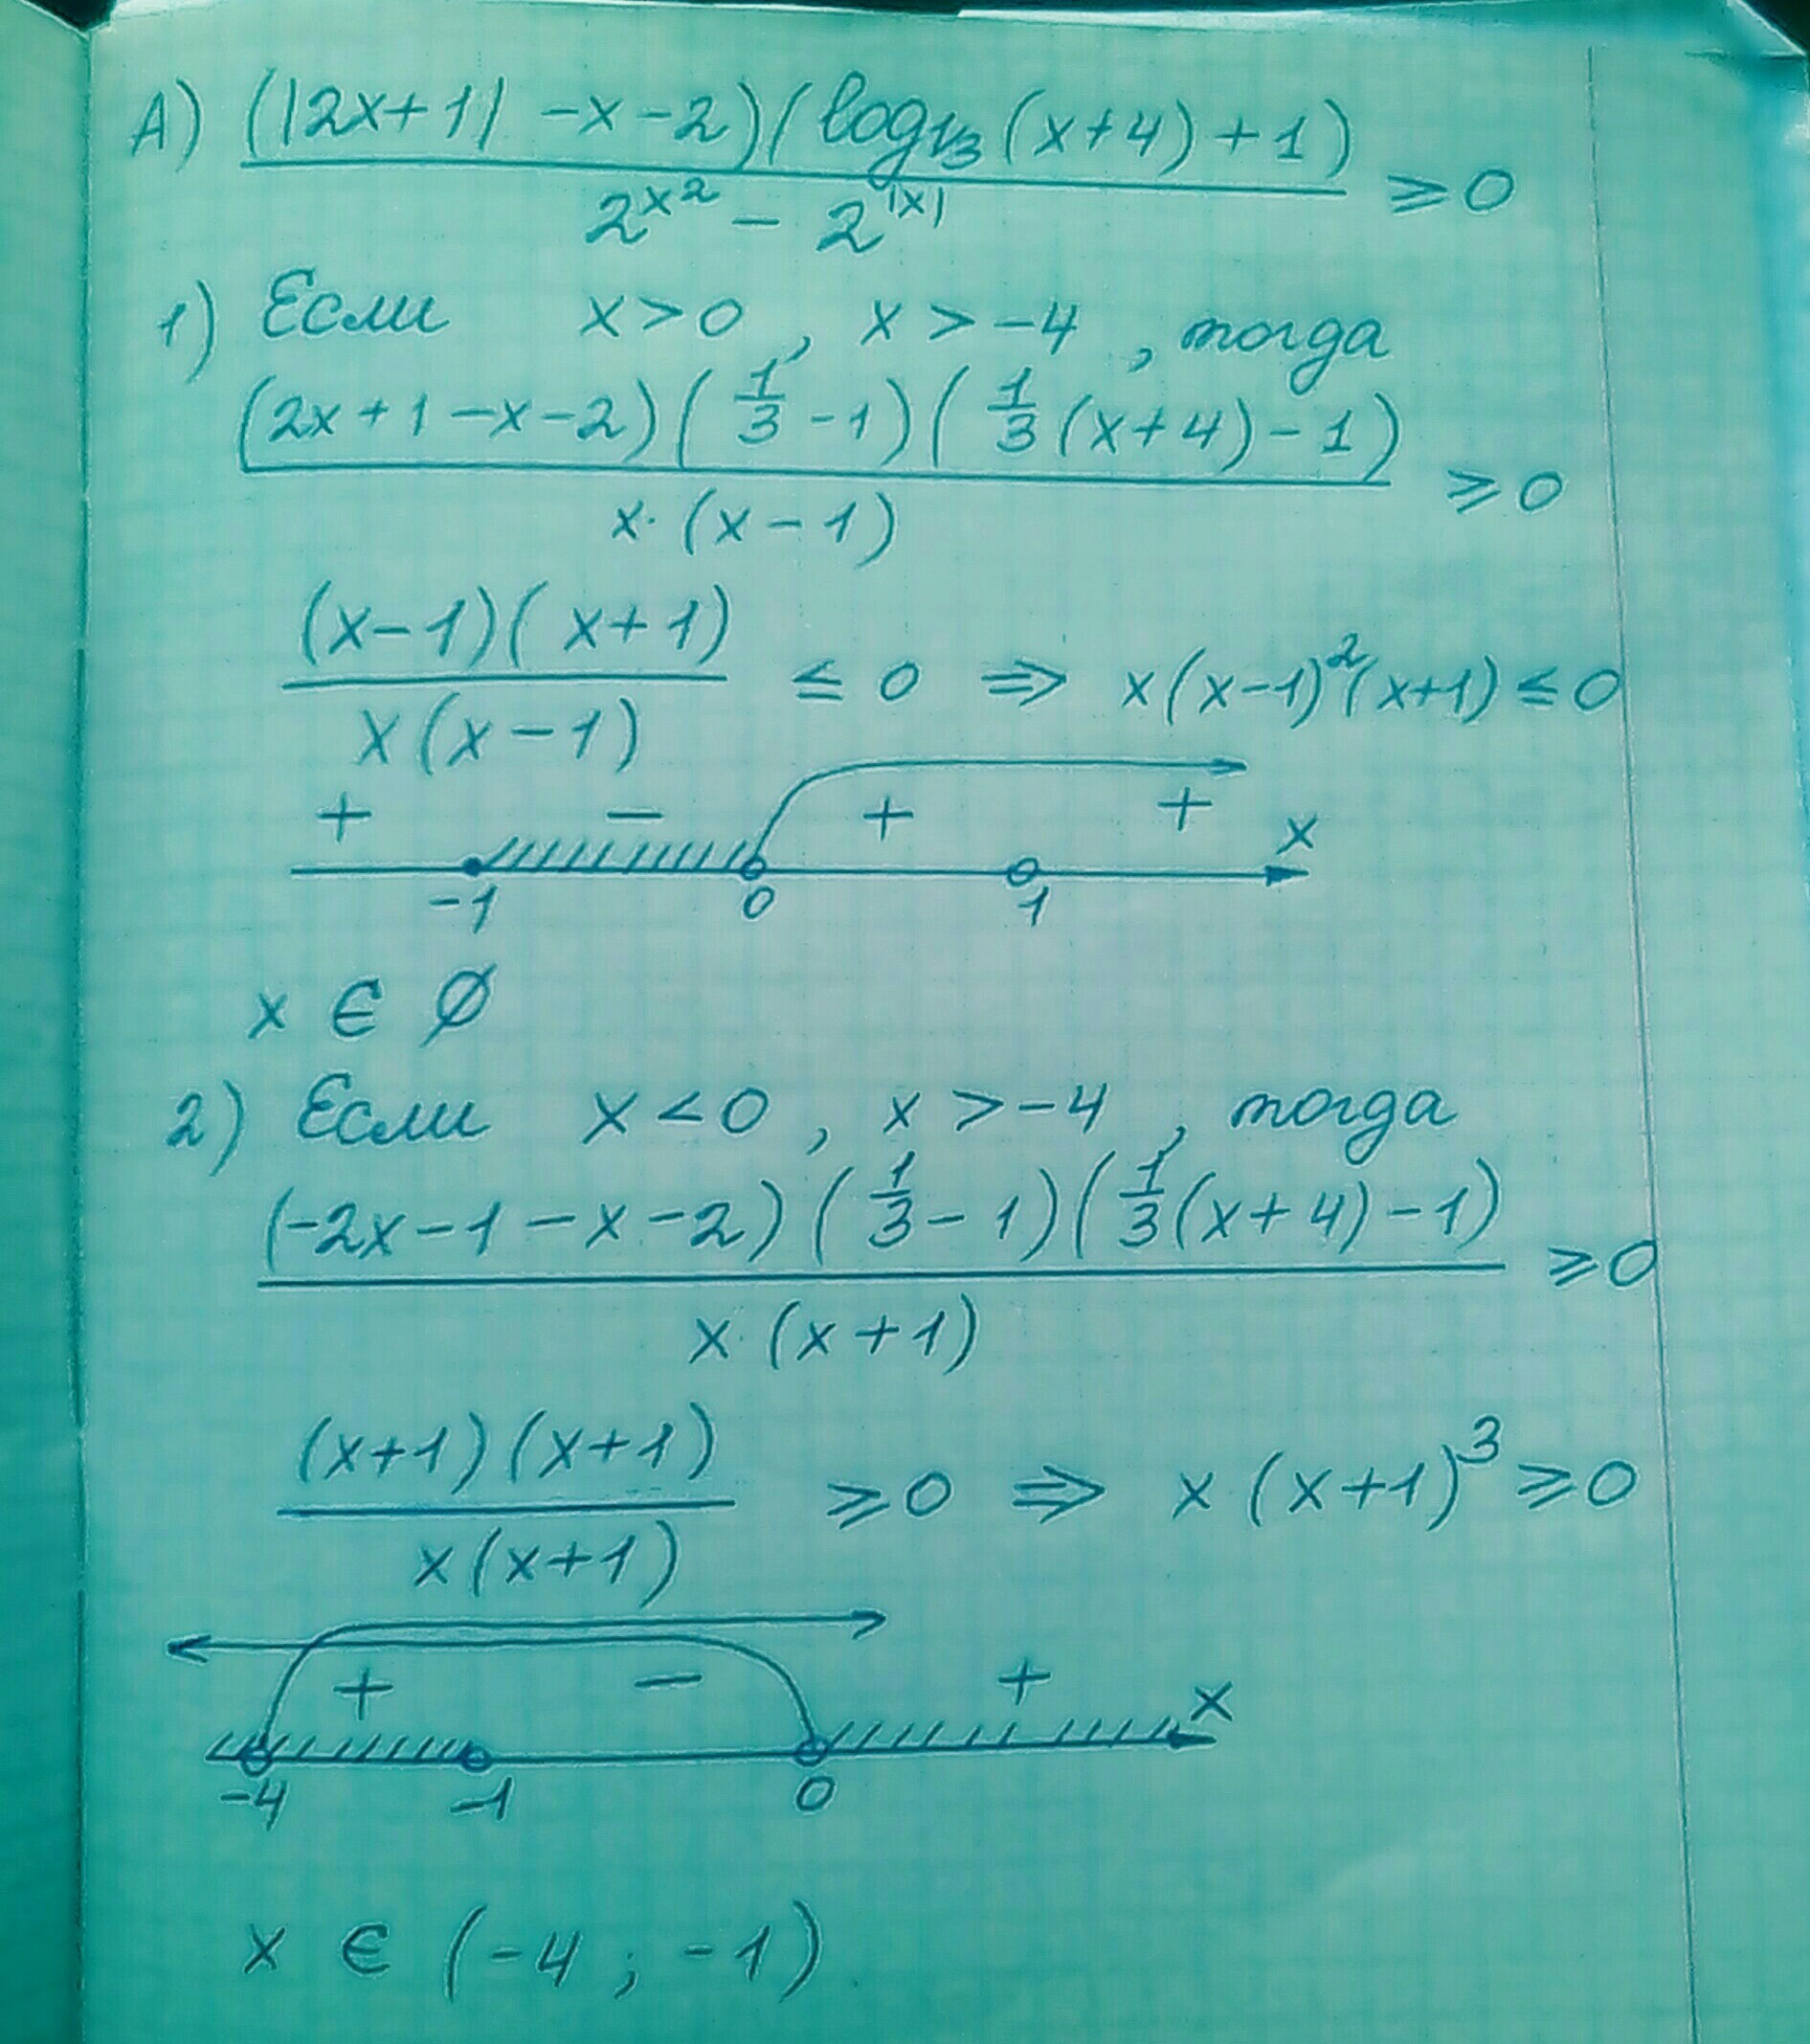 А) (|2x+1| -x-2)(log₁/₃(x+4)+1)
2^x² - 2^|x| ⩾ 0
1) Если x>0, x>-4, тогда
(2x+1-x-2)(1/3-1)(1/3(x+4)-1)
x·(x-1) ⩾ 0
(x-1)(x+1)
x(x-1) ≤ 0 ⇒ x(x-1)²(x+1) ≤ 0
+ - + + x
-1 0 1
x ∈ ∅
2) Если x<0, x>-4, тогда
(-2x-1-x-2)(1/3-1)(1/3(x+4)-1)
x·(x+1) ⩾ 0
(x+1)(x+1)
x(x+1) ⩾ 0 ⇒ x(x+1)³ ⩾ 0
+ - + x
-4 -1 0
x ∈ (-4; -1)